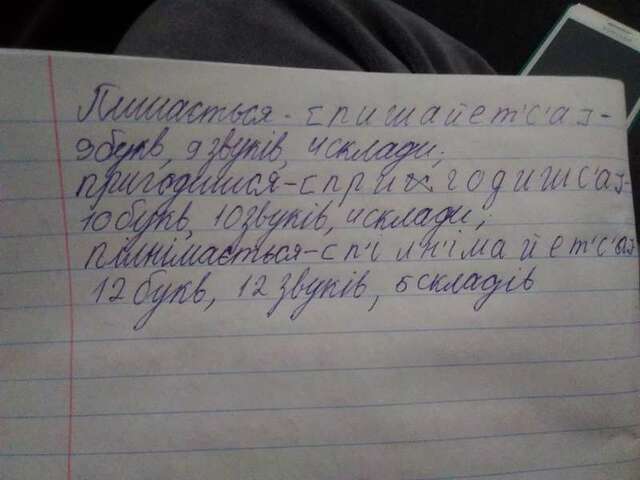 Пишається - [пишайет'с'а] -
9 букв, 9 звуків, 4 склади;
пригодишся - [пригодишс'а] -
10 букв, 10 звуків, 4 склади;
піднімається - [п'ідн'імайет'с'а]
12 букв, 12 звуків, 5 складів